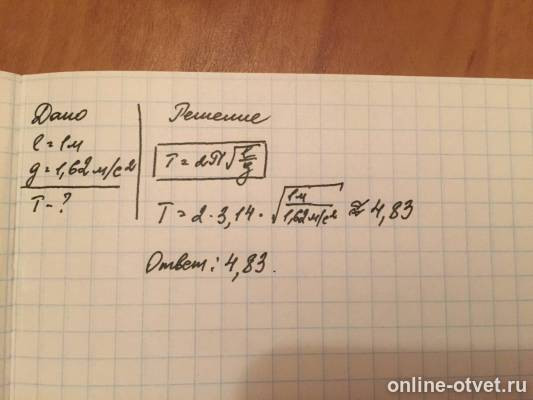 Дано
l = 1м
g = 1,62 м/с2
T - ?
Решение
T = 2π√l/g
T = 2 · 3,14 · √1м/1,62м/с2 ≈ 4,83
Ответ: 4,83.
online-otvet.ru